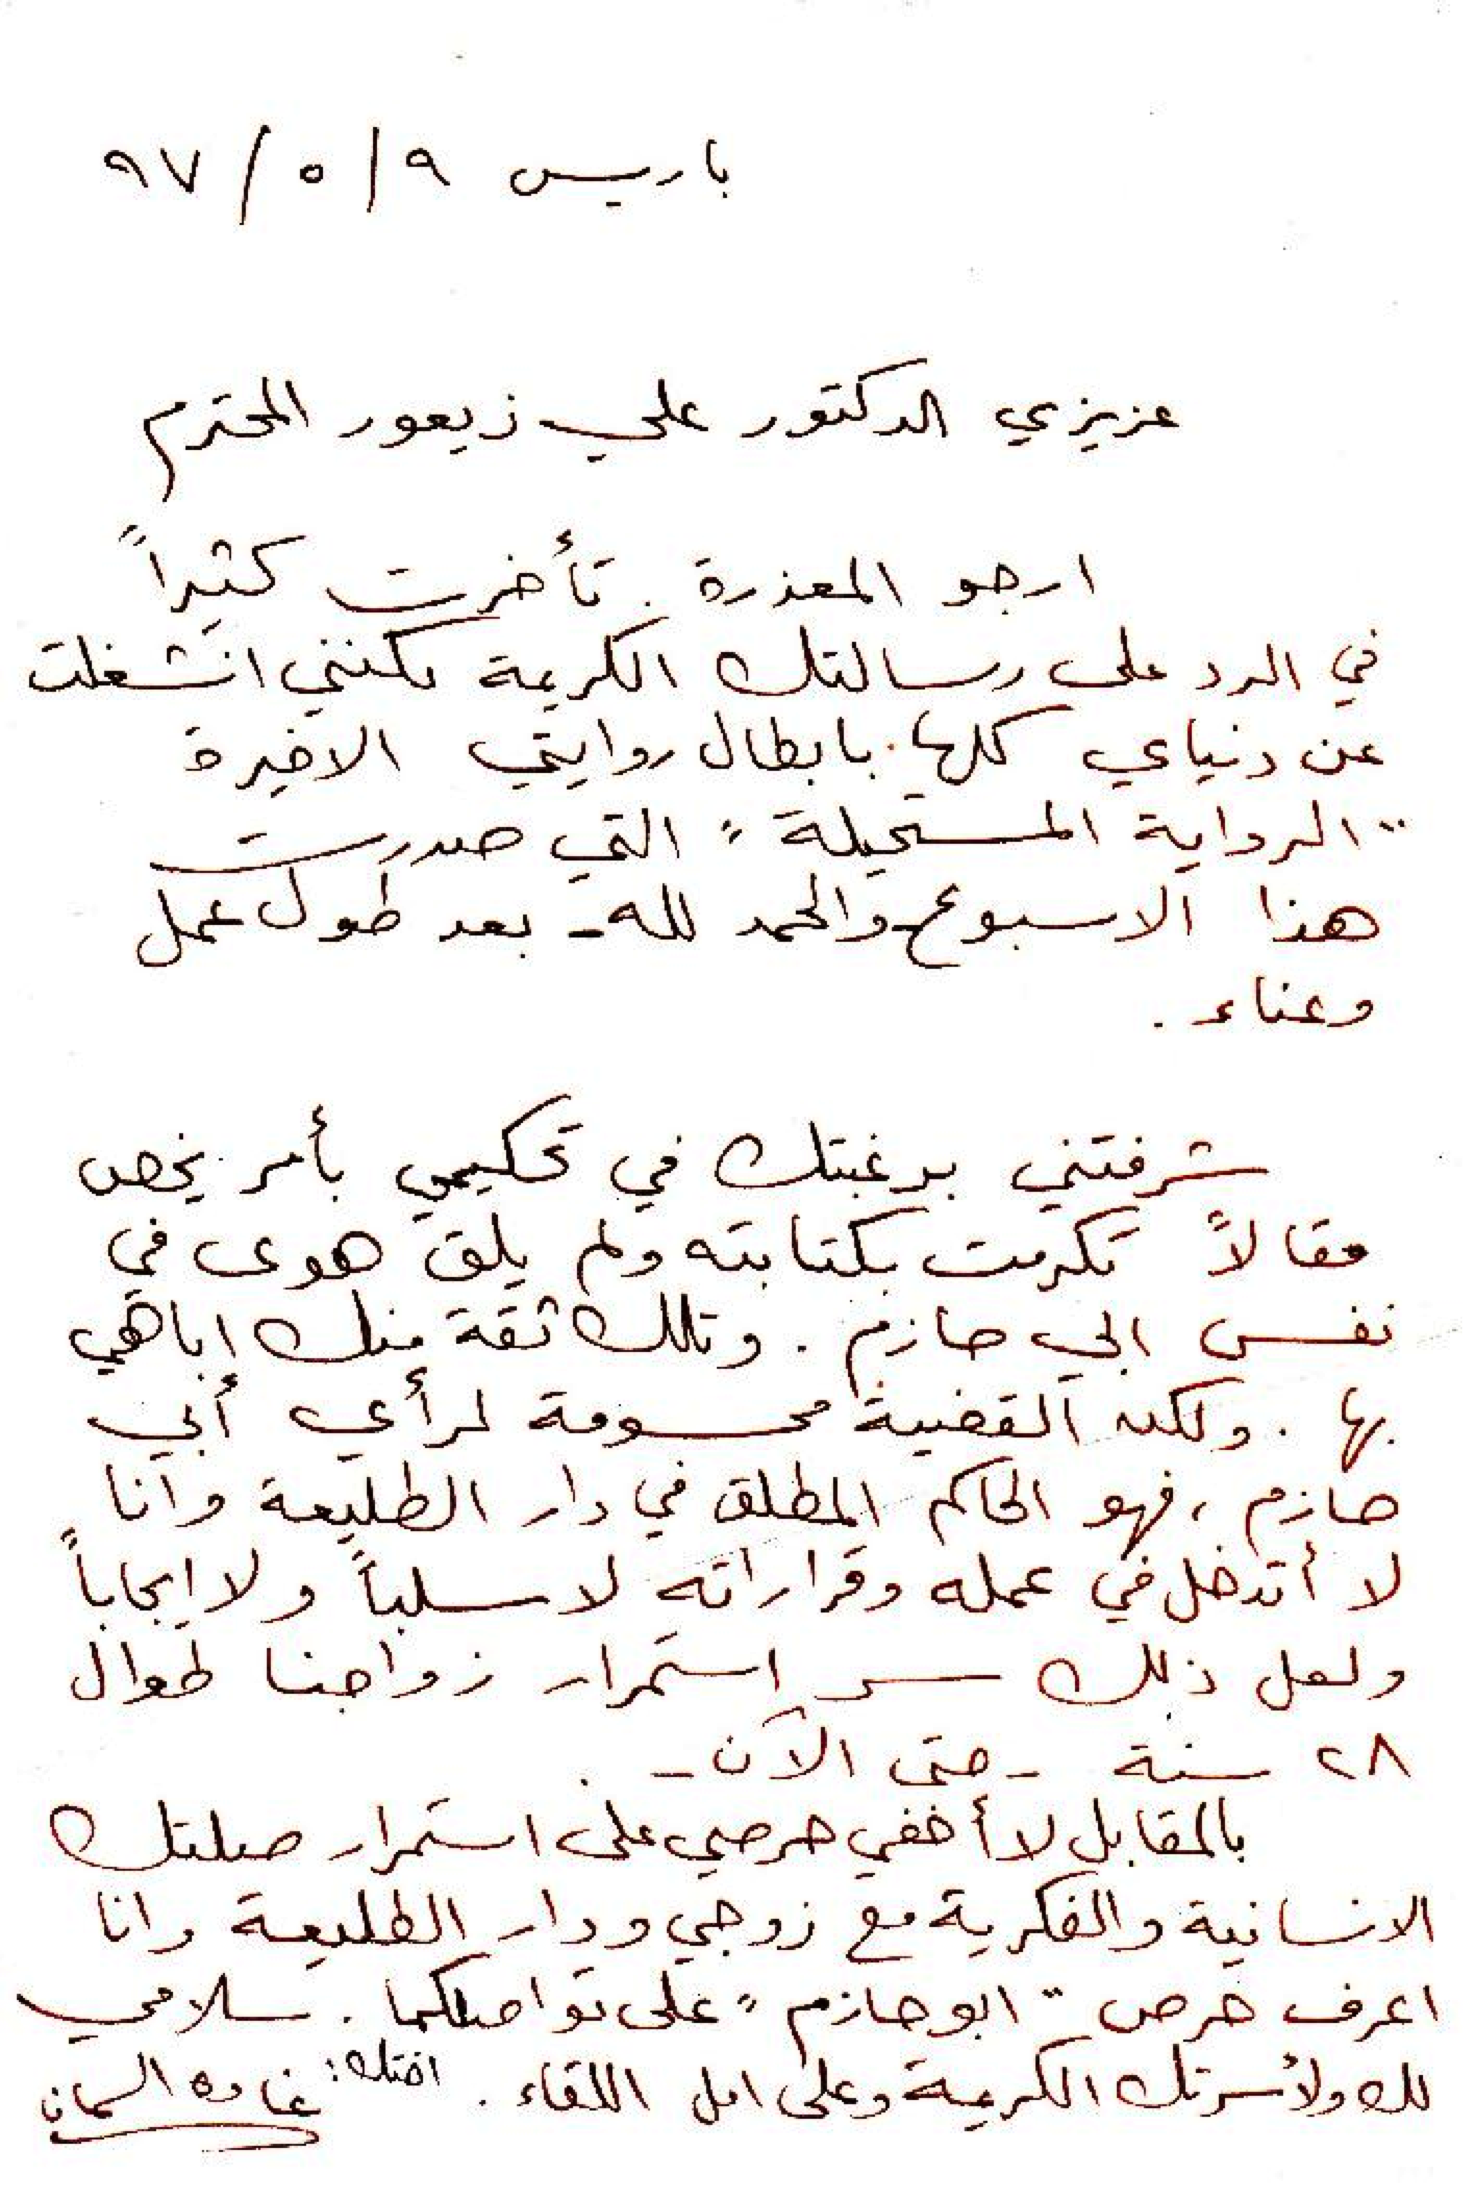 باريس ٩/٥/٩٧
عزيزي الدكتور علي زيعور المحترم
ارجو المعذرة. تأخرت كثيراً
في الرد على رسالتك الكريمة لكنني انشغلت
عن دنياي كلها بابطال روايتي الاخيرة
"الرواية المستحيلة" التي صدرت
هذا الاسبوع والحمد لله - بعد طول عمل
وعناء.
شرفتني برغبتك في تحكيمي بأمر يخص
مقالاً تكرمت بكتابته ولم يلق هوى في
نفس ابي حازم. وتلك ثقة منك اباهي
بها. ولكن القضية محسومة لرأي أبي
حازم، فهو الحاكم المطلق في دار الطليعة وانا
لا أتدخل في عمله وقراراته لا سلباً ولا ايجاباً
ولعل ذلك سر إستمرار زواجنا طوال
٢٨ سنة - حتى الآن -.
بالمقابل لا أخفي حرصي على استمرار صلتك
الانسانية والفكرية مع زوجي ودار الطليعة وانا
اعرف حرص "ابو حازم" على تواصلكما. سلامي
لك ولأسرتك الكريمة وعلى امل اللقاء. اختك: غادة السمان